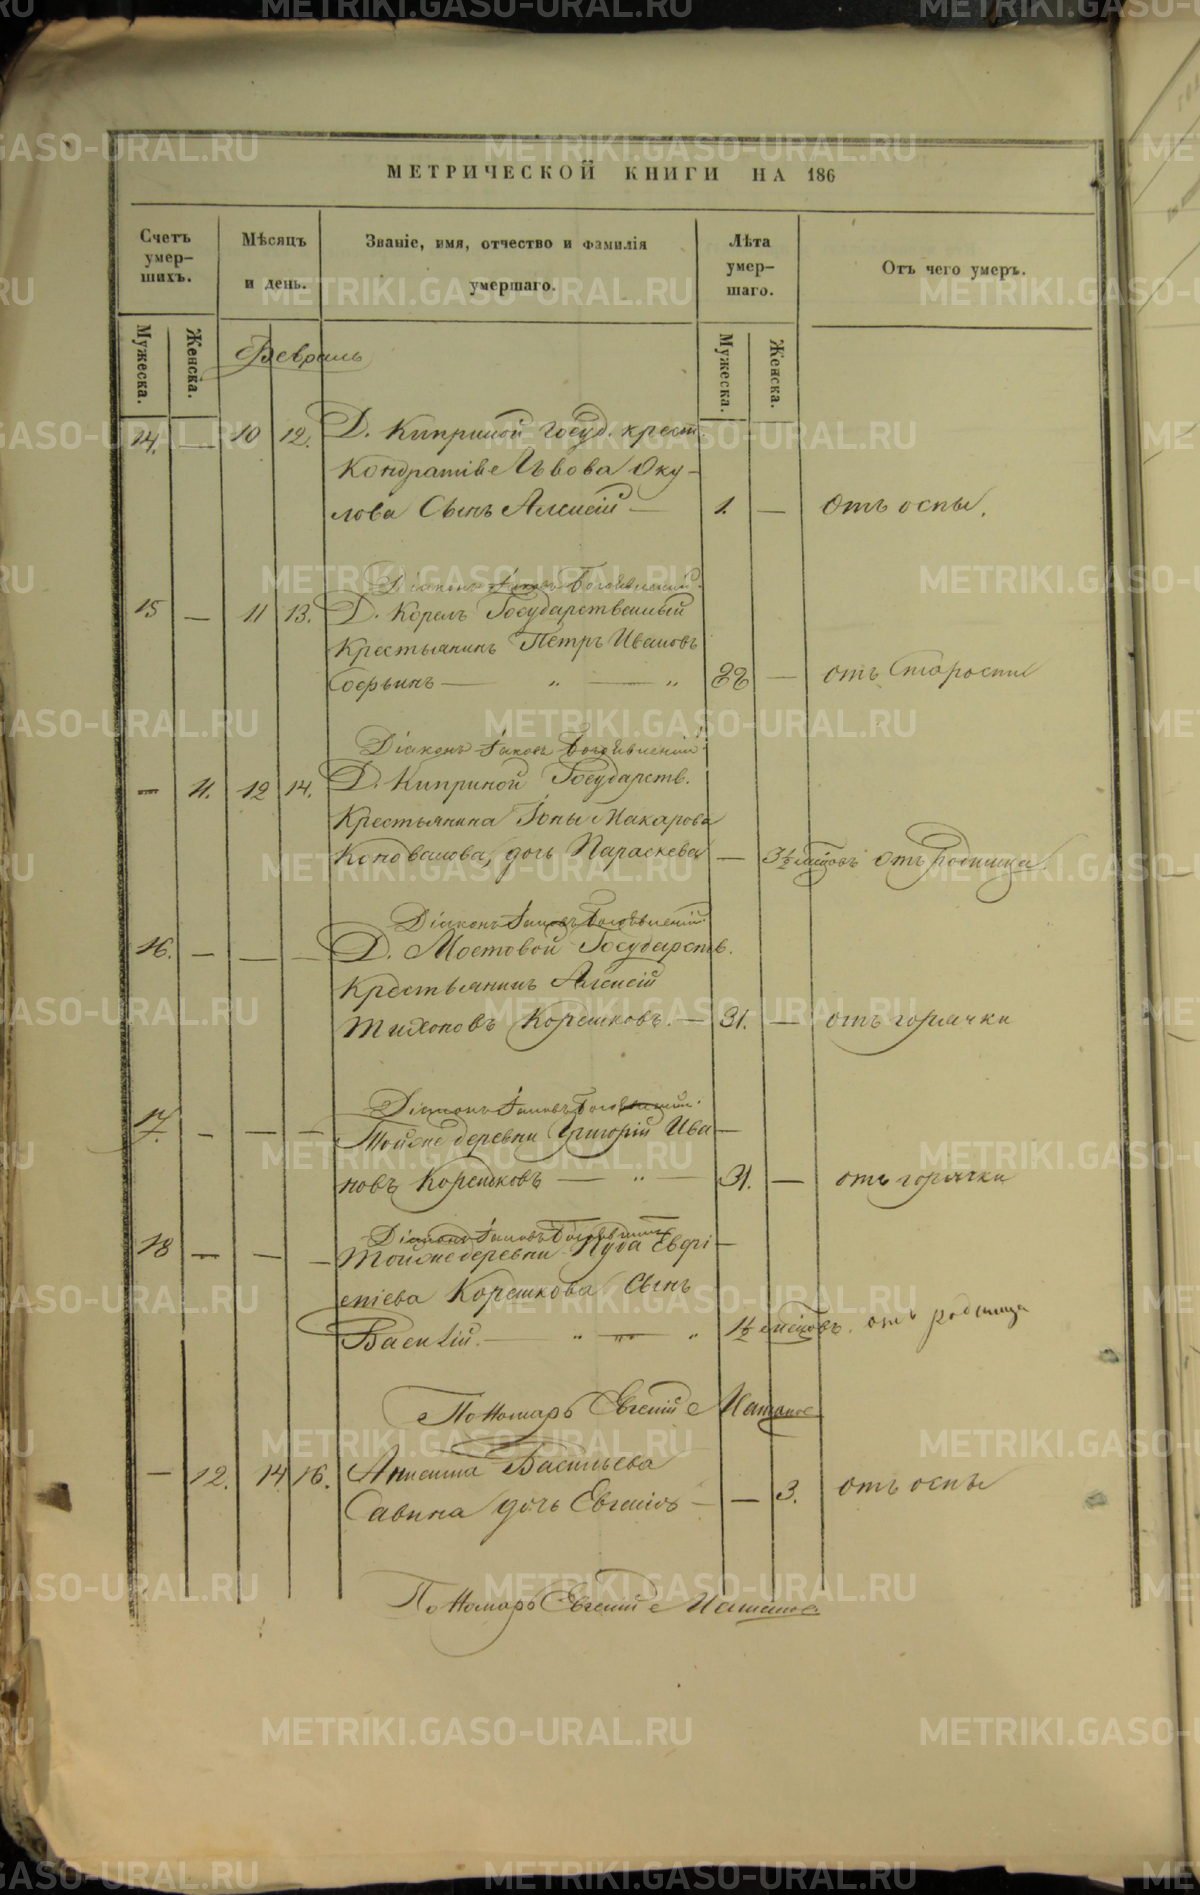 МЕТРИЧЕСКОЙ КНИГИ НА 186
Счетъ умер-шихъ.
Мѣсяцъ и день.
Званіе, имя, отчество и фамилія умершаго.
Лѣта умер-шаго.
Отъ чего умеръ.
Мужеска.
Женска.
Мужеска.
Женска.
Февраль
14. — 10 12. Д. Киприной госуд. крест.
Кондратіе Львова Оку-
лова Сынъ Алексій — 1. — Отъ оспы.
Діаконъ Іаковъ Богоявленскій.
15 — 11 13. Д. Корелъ Государственный
Крестьянинъ Петръ Ивановъ
Софьинъ — „ — „ 82 — отъ Старости
Діаконъ Іаковъ Богоявленскій.
— 11. 12 14. Д. Киприной Государств.
Крестьянина Іоны Макарова
Коновалова, дочь Параскева — 3½ месцовъ отъ родимца.
Діаконъ Іаковъ Богоявленскій.
16. — — — Д. Мостовой Государств.
Крестьянинъ Алексій
Тихоновъ Корешковъ. — 31. — отъ горячки
Діаконъ Іаковъ Богоявленскій.
17. — — — Тойже деревни Григорій Ива —
новъ Корешковъ — „ — 31. — отъ горячки
Діаконъ Іаковъ Богоявленскій
18 — — — Тойже деревни Нуда Евфі —
меніева Корешкова Сынъ
Василій. — „ — „ — „ 1½ месцовъ. отъ родимца
Пономарь Евгеній
— 12. 14 16. Анисима Васильева
Савина дочь Евгенія — — 3. отъ оспы
Пономарь Евгеній
METRIKI.GASO-URAL.RU